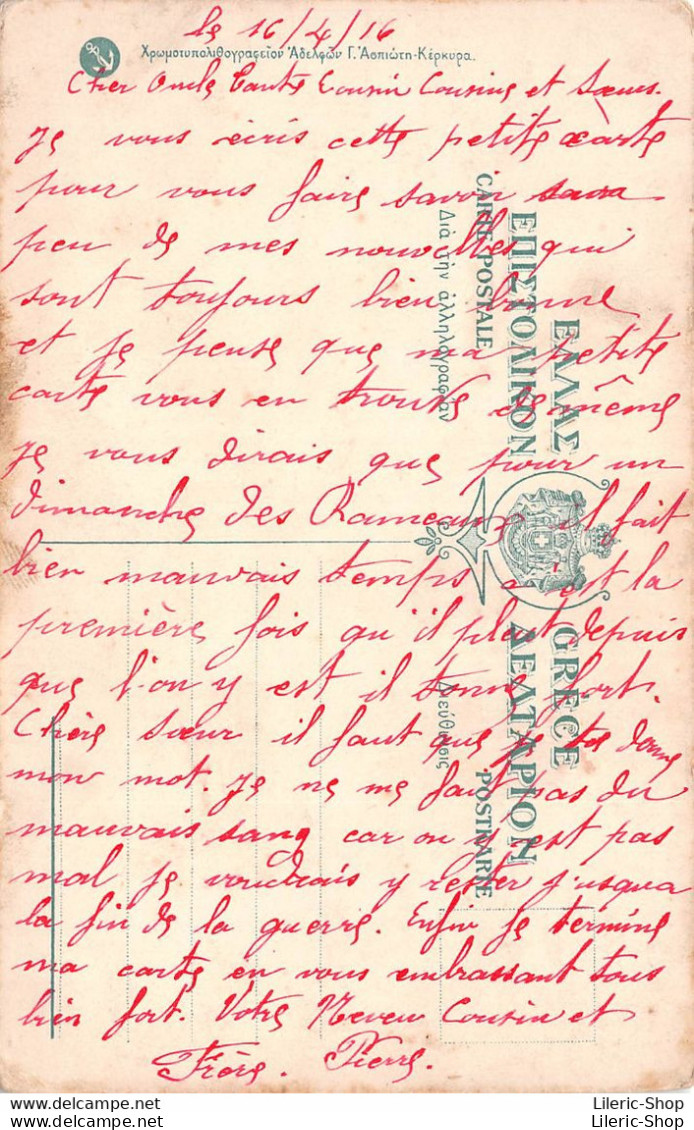 le 16/4/16
Χρωμοτυπολιθογραφεῖον Ἀδελφῶν Γ. Ἀσπιώτη-Κέρκυρα.
Cher Oncle Tante Cousin Cousine et Sœur.
Je vous écris cette petite carte
pour vous faire savoir
peu de mes nouvelles qui
sont toujours bien bonne
et je pense que ma petite
carte vous en trouve de même
Je vous dirais que pour un
dimanche des Rameaux il fait
bien mauvais temps c'est la
première fois qu'il pleut depuis
que l'on y est il tonne fort.
Chère sœur il faut que je te donne
mon mot. Je ne me fait pas du
mauvais sang car on y est pas
mal je voudrais y rester jusqua
la fin de la guerre. Enfin je termine
ma carte en vous embrassant tous
bien fort. Votre Neveu Cousin et
Frère. Pierre.
ΕΛΛΑΣ GRÈCE
ΕΠΙΣΤΟΛΙΚΟΝ ΔΕΛΤΑΡΙΟΝ
CARTE POSTALE POSTKARTE
Διὰ τὴν ἀλληλογραφίαν
Διεύθυνσις
Lileric-Shop
Lileric-Shop